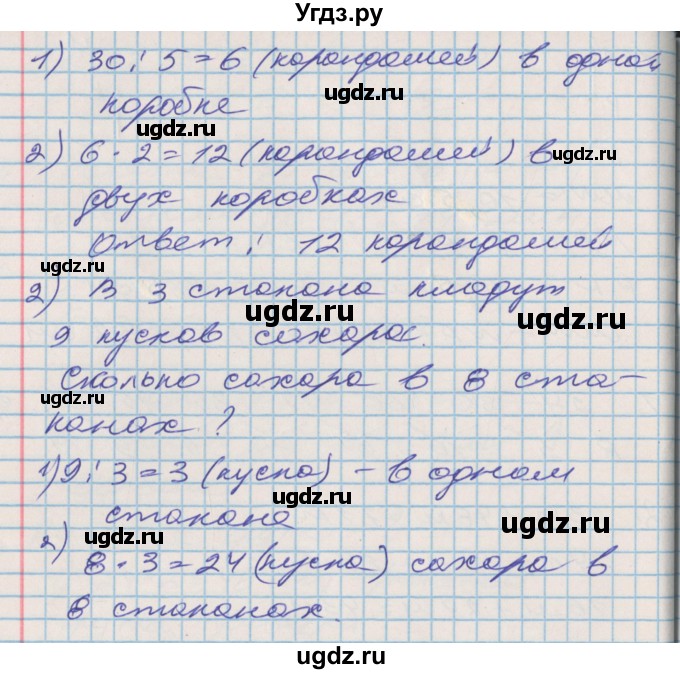 Угдз.ру
1) 30 : 5 = 6 (карандашей) в одной
коробке
2) 6 · 2 = 12 (карандашей) в
двух коробках
Ответ : 12 карандашей
2) В 3 стакана кладут
9 кусков сахара.
Сколько сахара в 8 ста-
канах ?
1) 9 : 3 = 3 (куска) – в одном
стакане
2) 8 · 3 = 24 (куска) сахара в
8 стаканах.
ugdz.ru
ugdz.ru
ugdz.ru
ugdz.ru
ugdz.ru
ugdz.ru
ugdz.ru
ugdz.ru
ugdz.ru
ugdz.ru
ugdz.ru
ugdz.ru